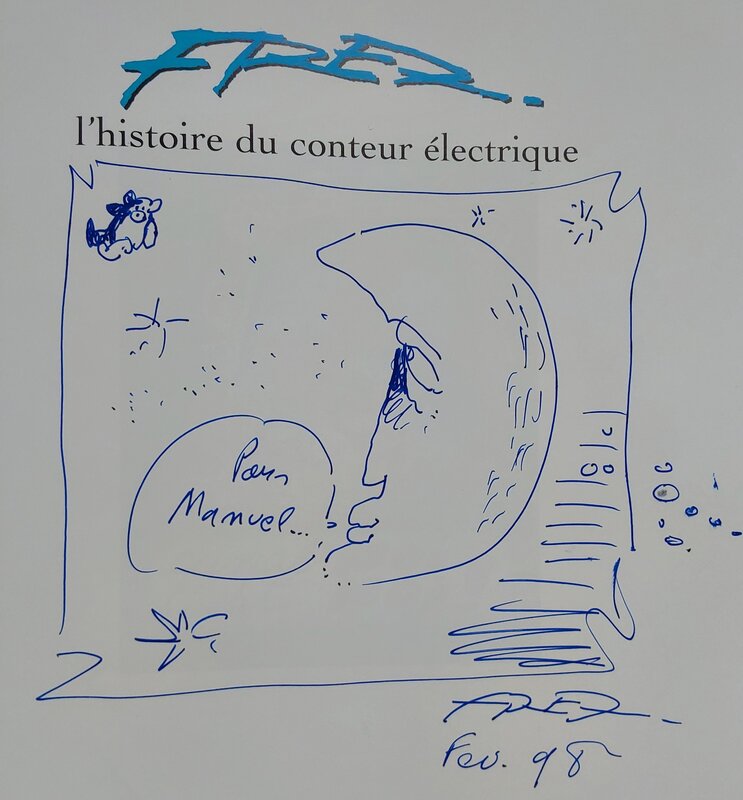 FRED..
l'histoire du conteur électrique
Pour
Manuel...
FRED.
Fev. 98